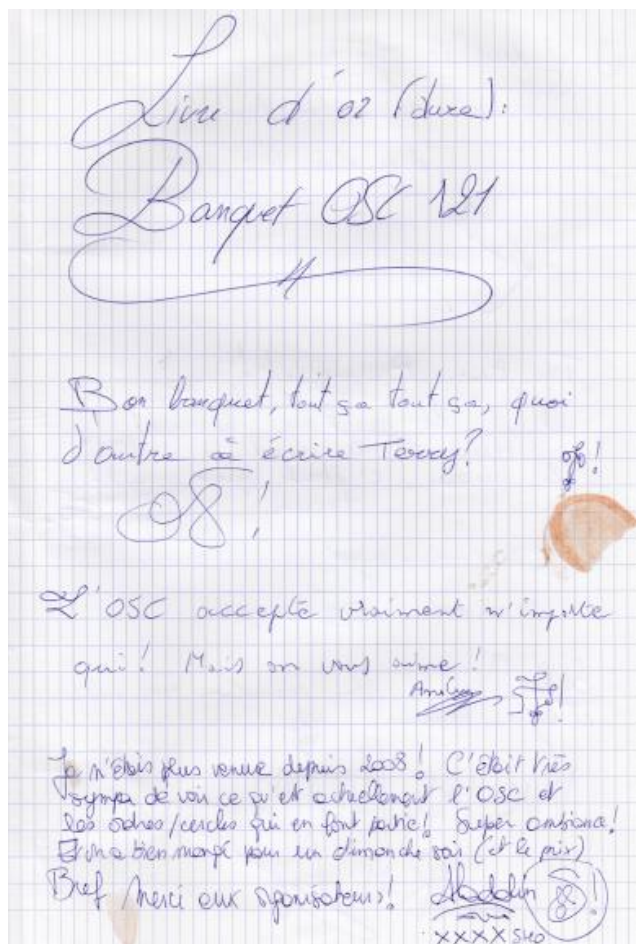 Livre d'or (dure):
Banquet OSC 121
Bon banquet, tout ça tout ça, quoi
d'autre à écrire Terry?
!
L'OSC accepte vraiment n'importe
qui! Mais on vous aime!
Je n'étais plus venue depuis 2008! C'était très
sympa de voir ce qu'est actuellement l'OSC et
les ordres/cercles qui en font partie! Super ambiance!
Et on a bien mangé pour un dimanche soir (et le prix)
Bref Merci aux organisateurs! Aladdin
XXXX